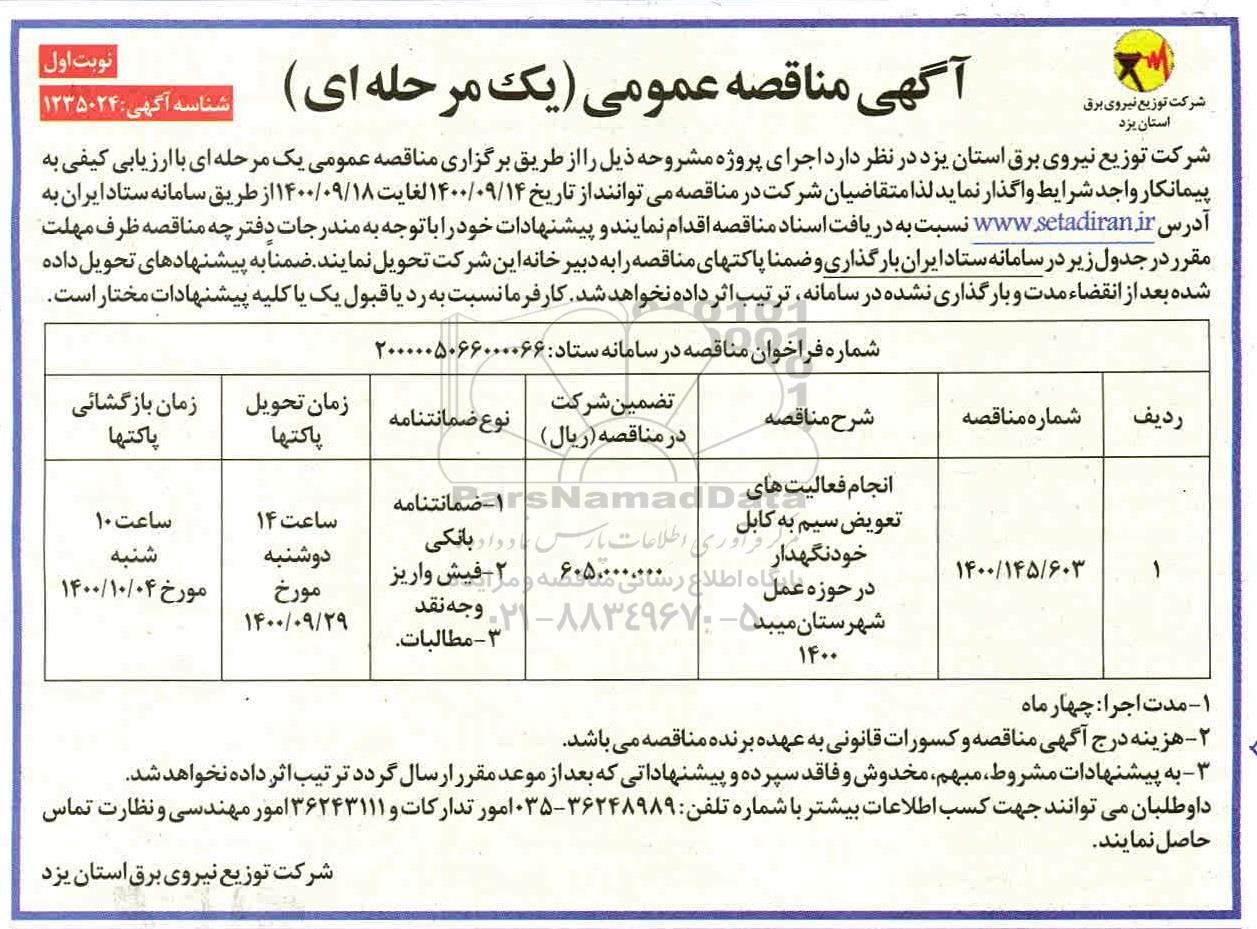 نوبت اول
شناسه آگهی: ۱۲۳۵۰۲۴
آگهی مناقصه عمومی (یک مرحله ای)
شرکت توزیع نیروی برق
استان یزد
شرکت توزیع نیروی برق استان یزد در نظر دارد اجرای پروژه مشروحه ذیل را از طریق برگزاری مناقصه عمومی یک مرحله ای با ارزیابی کیفی به
پیمانکار واجد شرایط واگذار نماید لذا متقاضیان شرکت در مناقصه می توانند از تاریخ ۱۴۰۰/۰۹/۱۴ لغایت ۱۴۰۰/۰۹/۱۸ از طریق سامانه ستاد ایران به
آدرس www.setadiran.ir نسبت به دریافت اسناد مناقصه اقدام نمایند و پیشنهادات خود را با توجه به مندرجات دفترچه مناقصه ظرف مهلت
مقرر در جدول زیر در سامانه ستاد ایران بارگذاری و ضمنا پاکتهای مناقصه را به دبیرخانه این شرکت تحویل نمایند. ضمناً به پیشنهادهای تحویل داده
شده بعد از انقضاء مدت و بارگذاری نشده در سامانه، ترتیب اثر داده نخواهد شد. کارفرما نسبت به رد یا قبول یک یا کلیه پیشنهادات مختار است.
شماره فراخوان مناقصه در سامانه ستاد: ۲۰۰۰۰۰۵۰۶۶۰۰۰۰۶۶
ردیف
شماره مناقصه
شرح مناقصه
تضمین شرکت
در مناقصه (ریال)
نوع ضمانتنامه
زمان تحویل
پاکتها
زمان بازگشائی
پاکتها
۱
۱۴۰۰/۱۴۵/۶۰۳
انجام فعالیت های
تعویض سیم به کابل
خودنگهدار
در حوزه عمل
شهرستان میبد
۱۴۰۰
۶۰۵.۰۰۰.۰۰۰
۱-ضمانتنامه
بانکی
۲-فیش واریز
وجه نقد
۳-مطالبات.
ساعت ۱۴
دوشنبه
مورخ
۱۴۰۰/۰۹/۲۹
ساعت ۱۰
شنبه
مورخ ۱۴۰۰/۱۰/۰۴
ParsNamadData
مرکز فرآوری اطلاعات پارس نماد داده ها
پایگاه اطلاع رسانی مناقصه و مزایده
۰۲۱-۸۸۳۴۹۶۷۰-۵
۱-مدت اجرا: چهار ماه
۲-هزینه درج آگهی مناقصه و کسورات قانونی به عهده برنده مناقصه می باشد.
۳-به پیشنهادات مشروط، مبهم، مخدوش و فاقد سپرده و پیشنهاداتی که بعد از موعد مقرر ارسال گردد ترتیب اثر داده نخواهد شد.
داوطلبان می توانند جهت کسب اطلاعات بیشتر با شماره تلفن: ۳۶۲۴۸۹۸۹-۰۳۵ امور تدارکات و ۳۶۲۴۳۱۱۱ امور مهندسی و نظارت تماس
حاصل نمایند.
شرکت توزیع نیروی برق استان یزد